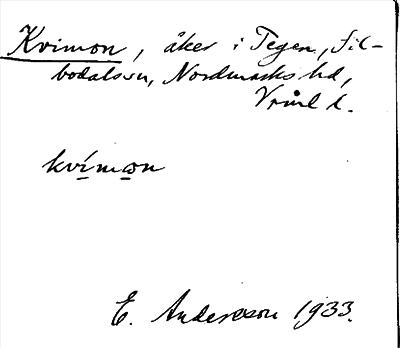 Kvimon, åker i Tegen, Sil-
bodals sn, Nordmarks hd,
Vrml l.
kvímon
E. Andersson 1933.